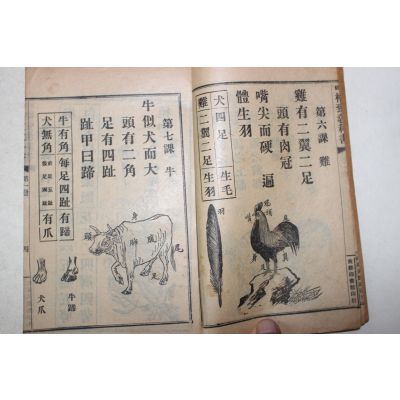 第六課 雞
雞有二翼二足
頭有肉冠
嘴尖而硬 遍
體生羽
犬四足 生毛
雞二翼二足 生羽
羽
第七課 牛
牛似犬而大
頭有二角
足有四趾
趾甲曰蹄
牛有角 每足四趾 有蹄
犬無角 前足五趾 後足四趾 有爪
牛蹄
犬爪